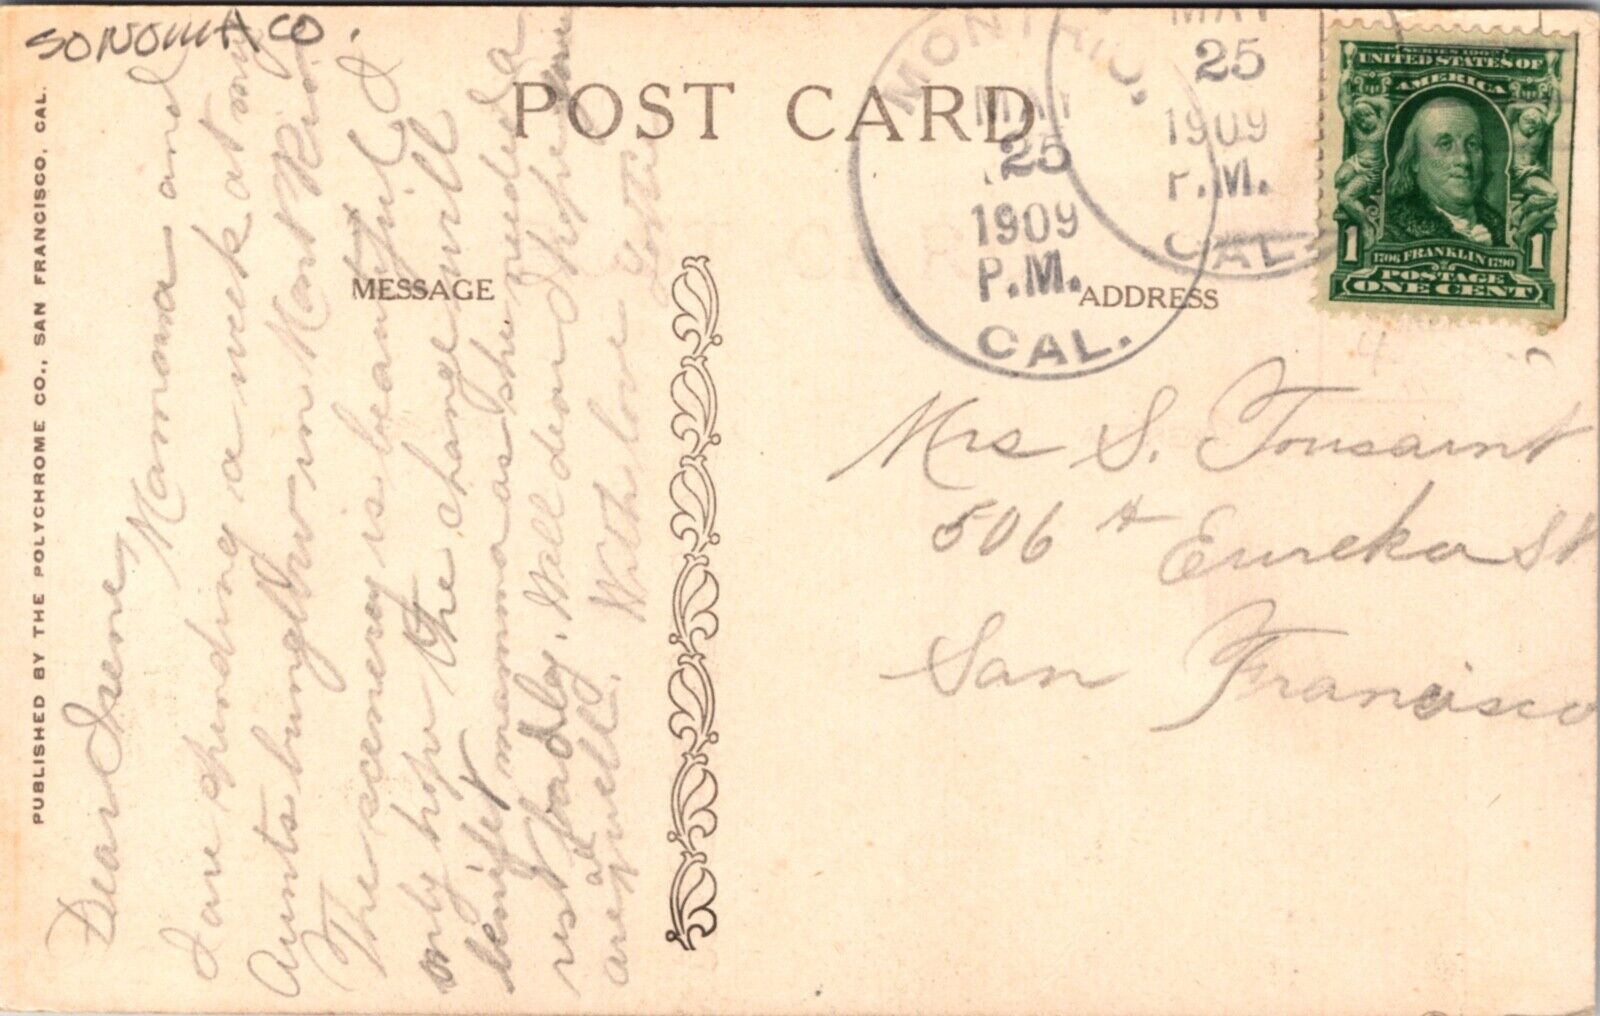 SONOMA CO.
POST CARD
MONTRIO,
MAY
25
1909
P.M.
CAL.
MAY
25
1909
P.M.
CAL.
SERIES 1902
UNITED STATES OF
AMERICA
1 1706 FRANKLIN 1790 1
POSTAGE
ONE CENT
MESSAGE
ADDRESS
PUBLISHED BY THE POLYCHROME CO., SAN FRANCISCO, CAL.
Dear Irene, Mamma and
I are spending a week at my
Aunts bungalow in Mont Rio
The scenery is beautiful I
only hope the change will
benifit mamma as she needed a
rest badly. Well dear I hope you
are all well. With love Lottie
Mrs S. Tousaint
506 A Eureka St
San Francisco